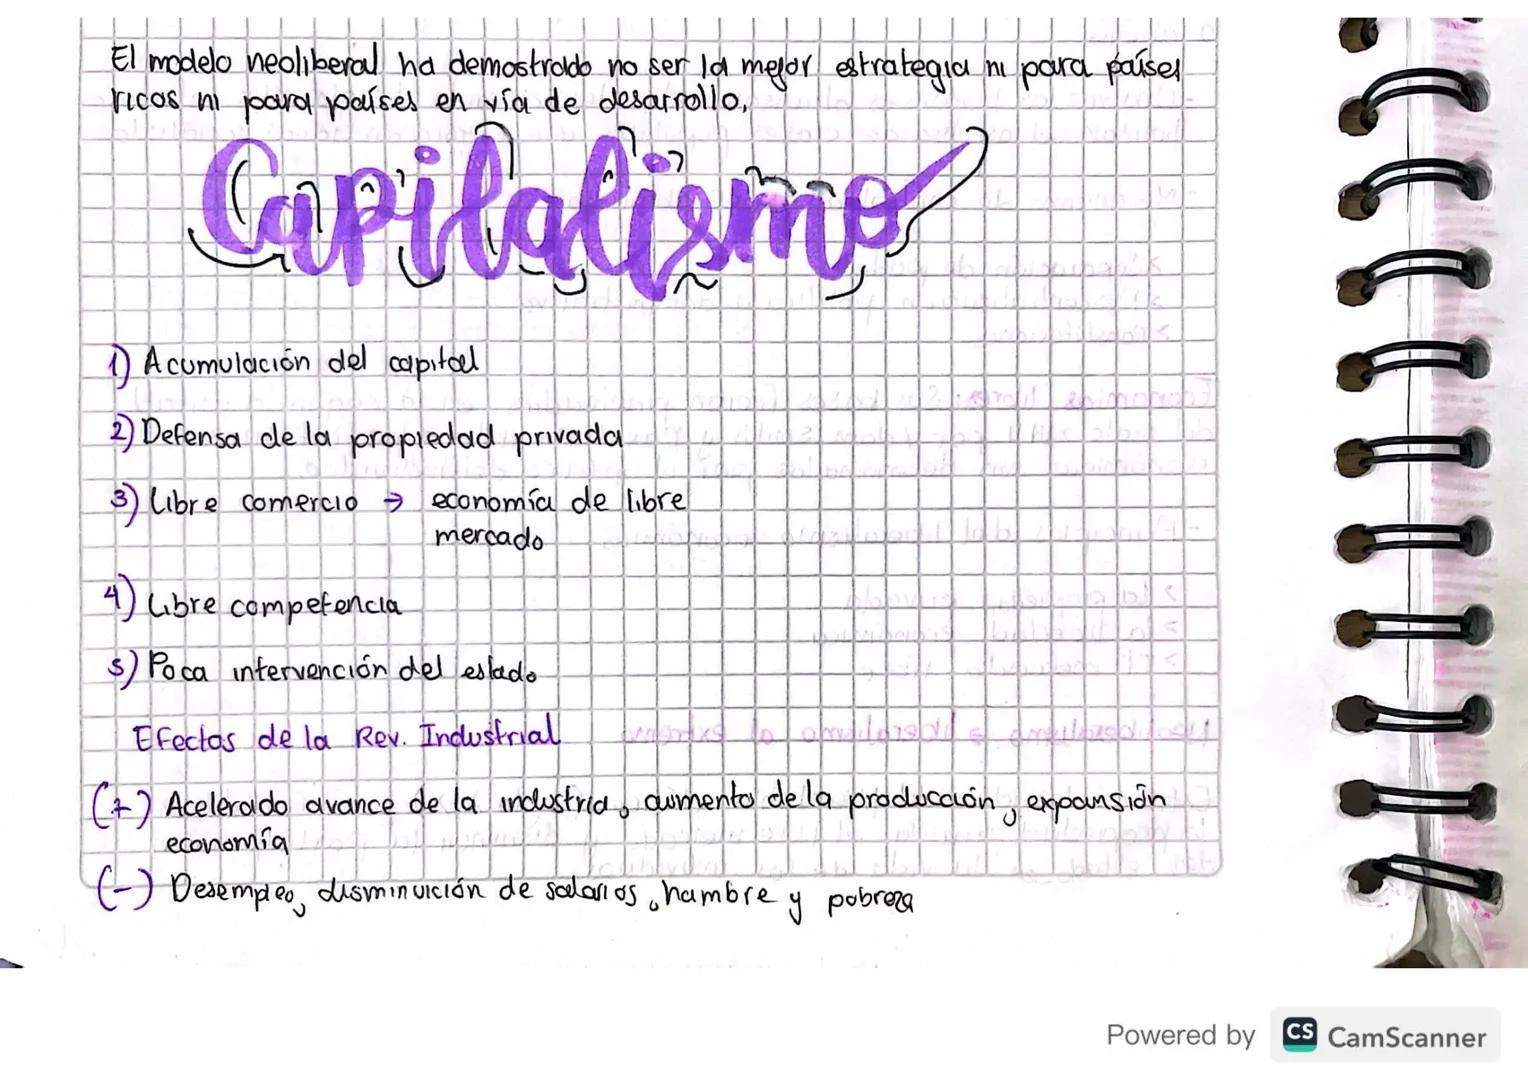 El modelo neoliberal ha demostrado no ser la mejor estrategia ni para países
ricos ni para países en vía de desarrollo,
Capitalismo
1) Acumulación del capital
2) Defensa de la propiedad privada
3) Libre comercio → economía de libre
mercado
4) Libre competencia
5) Poca intervención del estado
Efectos de la Rev. Industrial
(+) Acelerado avance de la industria, aumento de la producción, expansión
economía
(-) Desempleo, disminuición de salarios, hambre y pobreza
Powered by CS CamScanner